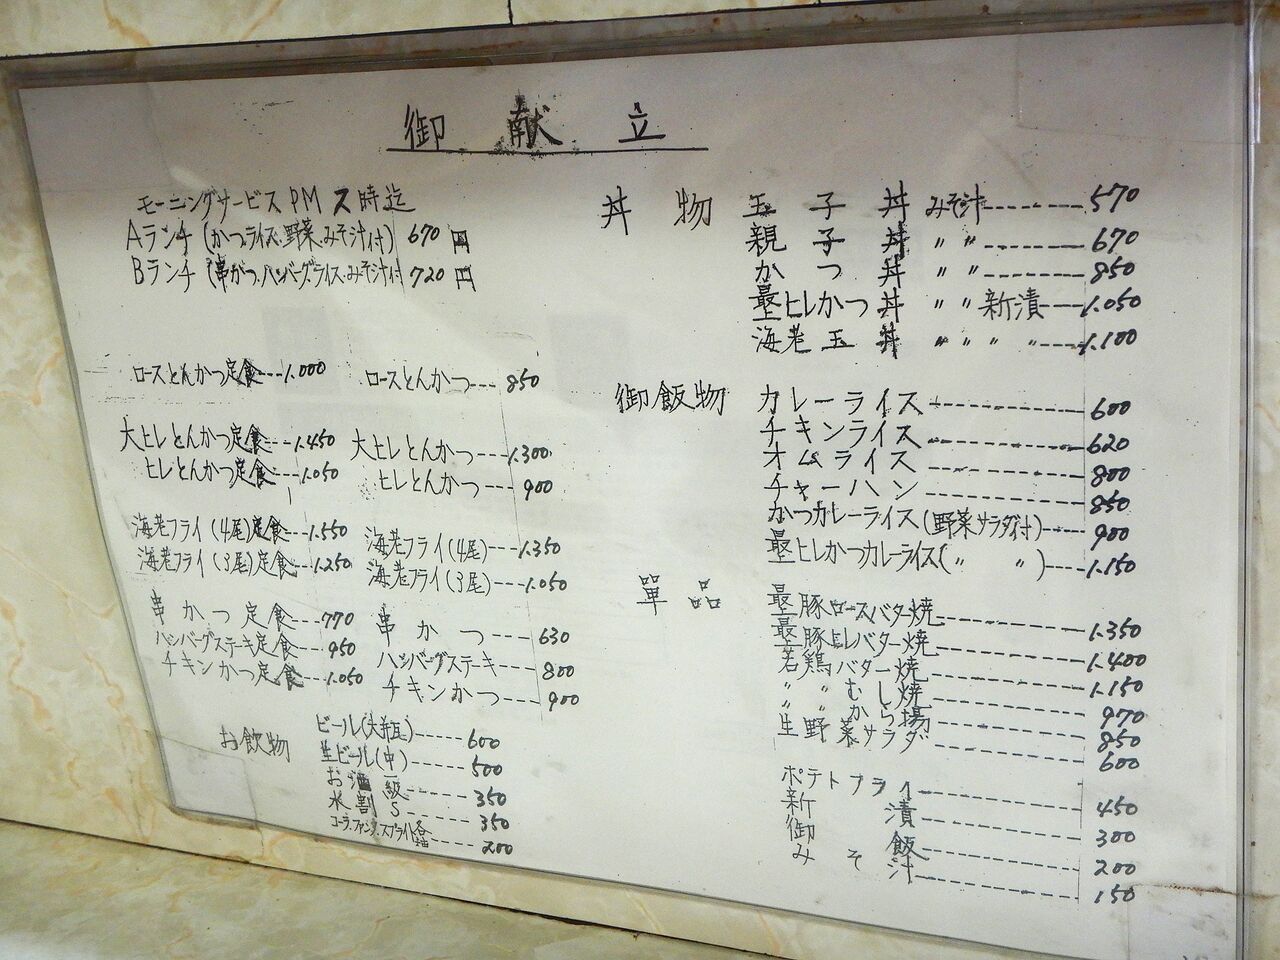 御献立
モーニングサービス PM 2時迄
Aランチ (かつライス、野菜、みそ汁付) 670円
Bランチ (串がつ、ハンバーグ、ライス、みそ汁付 720円
ロースとんかつ定食---1.000
大ヒレとんかつ定食---1.450
ヒレとんかつ定食---1.050
海老フライ(4尾)定食---1.550
海老フライ(3尾)定食---1.250
串かつ定食---770
ハンバーグステーキ定食---950
チキンかつ定食---1.050
ロースとんかつ---850
大ヒレとんかつ---1.300
ヒレとんかつ---900
海老フライ(4尾)---1.350
海老フライ(3尾)---1.050
串かつ---630
ハンバーグステーキ---800
チキンかつ---900
お飲物
ビール(大瓶)---600
生ビール(中)---500
お酒一級---350
水割S---350
コーラ、ファンタ、スプライト各---200
丼物
玉子丼 みそ汁---570
親子丼 〃 〃---670
かつ丼 〃 〃---850
最上ヒレかつ丼 〃 〃 新漬---1.050
海老玉丼 〃 〃 〃 〃---1.100
御飯物
カレーライス---600
チキンライス---620
オムライス---800
チャーハン---850
かつカレーライス(野菜サラダ付)---900
最上ヒレかつカレーライス(〃 〃)---1.150
單品
最上豚ロースバター焼---1.350
最上豚ヒレバター焼---1.400
若鶏バター焼---1.150
〃 〃 むし焼---970
〃 〃 から揚---850
生野菜サラダ---600
ポテトフライ---450
新漬---300
御飯---200
みそ汁---150